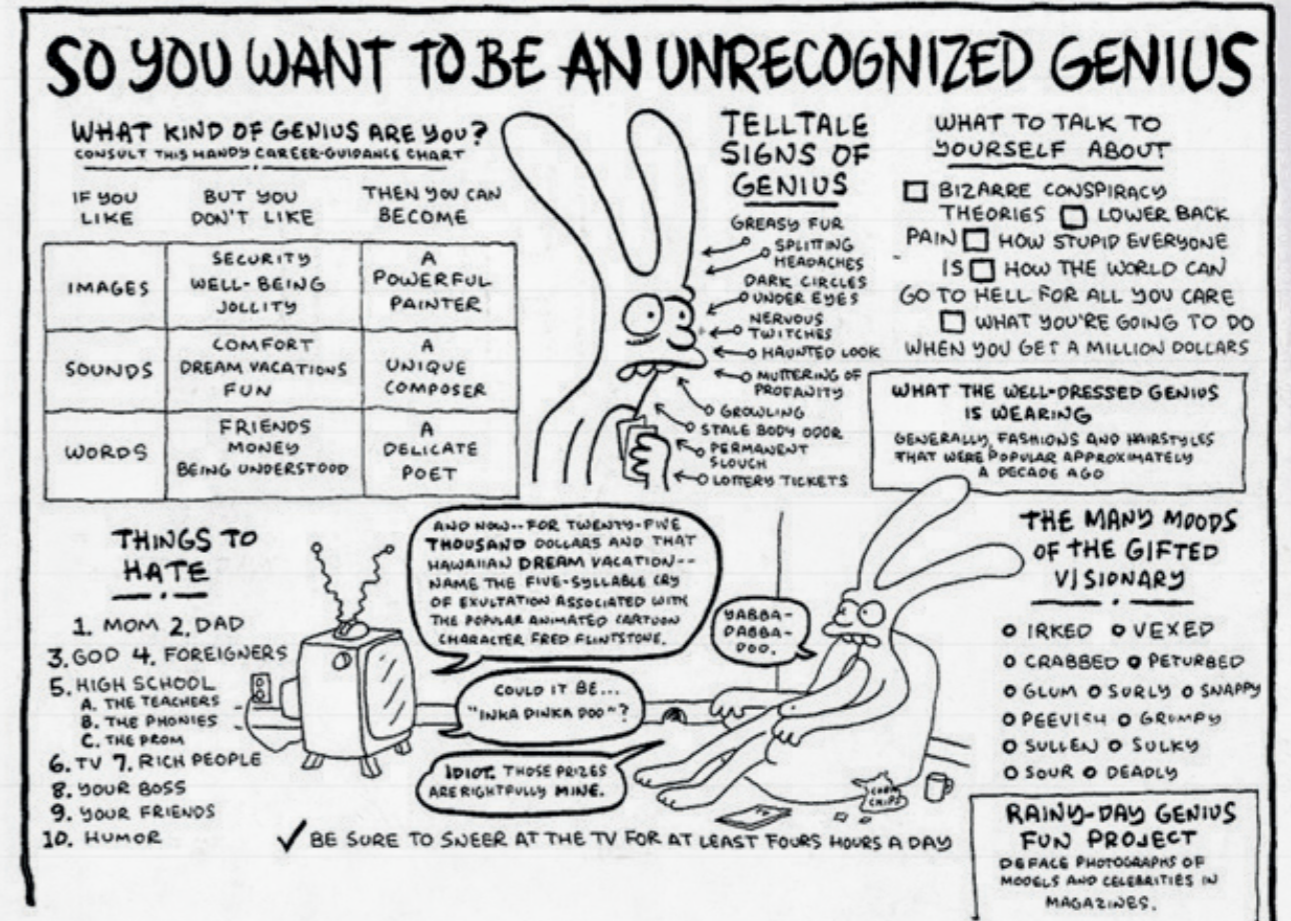 SO YOU WANT TO BE AN UNRECOGNIZED GENIUS
WHAT KIND OF GENIUS ARE YOU?
CONSULT THIS HANDY CAREER-GUIDANCE CHART
IF YOU
LIKE
BUT YOU
DON'T LIKE
THEN YOU CAN
BECOME
IMAGES
SECURITY
WELL-BEING
JOLLITY
A
POWERFUL
PAINTER
SOUNDS
COMFORT
DREAM VACATIONS
FUN
A
UNIQUE
COMPOSER
WORDS
FRIENDS
MONEY
BEING UNDERSTOOD
A
DELICATE
POET
TELLTALE
SIGNS OF
GENIUS
GREASY FUR
SPLITTING
HEADACHES
DARK CIRCLES
UNDER EYES
NERVOUS
TWITCHES
HAUNTED LOOK
MUTTERING OF
PROFANITY
GROWLING
STALE BODY ODOR
PERMANENT
SLOUCH
LOTTERY TICKETS
WHAT TO TALK TO
YOURSELF ABOUT
BIZARRE CONSPIRACY
THEORIES LOWER BACK
PAIN HOW STUPID EVERYONE
IS HOW THE WORLD CAN
GO TO HELL FOR ALL YOU CARE
WHAT YOU'RE GOING TO DO
WHEN YOU GET A MILLION DOLLARS
WHAT THE WELL-DRESSED GENIUS
IS WEARING
GENERALLY, FASHIONS AND HAIRSTYLES
THAT WERE POPULAR APPROXIMATELY
A DECADE AGO
THINGS TO
HATE
1. MOM 2. DAD
3. GOD 4. FOREIGNERS
5. HIGH SCHOOL
A. THE TEACHERS
B. THE PHONIES
C. THE PROM
6. TV 7. RICH PEOPLE
8. YOUR BOSS
9. YOUR FRIENDS
10. HUMOR
AND NOW--FOR TWENTY-FIVE
THOUSAND DOLLARS AND THAT
HAWAIIAN DREAM VACATION--
NAME THE FIVE-SYLLABLE CRY
OF EXULTATION ASSOCIATED WITH
THE POPULAR ANIMATED CARTOON
CHARACTER FRED FLINTSTONE.
YABBA-
DABBA-
DOO.
COULD IT BE...
"INKA DINKA DOO"?
IDIOT. THOSE PRIZES
ARE RIGHTFULLY MINE.
CORN
CHIPS
✓ BE SURE TO SNEER AT THE TV FOR AT LEAST FOURS HOURS A DAY
THE MANY MOODS
OF THE GIFTED
VISIONARY
IRKED VEXED
CRABBED PETURBED
GLUM SURLY SNAPPY
PEEVISH GRUMPY
SULLEN SULKY
SOUR DEADLY
RAINY-DAY GENIUS
FUN PROJECT
DEFACE PHOTOGRAPHS OF
MODELS AND CELEBRITIES IN
MAGAZINES.